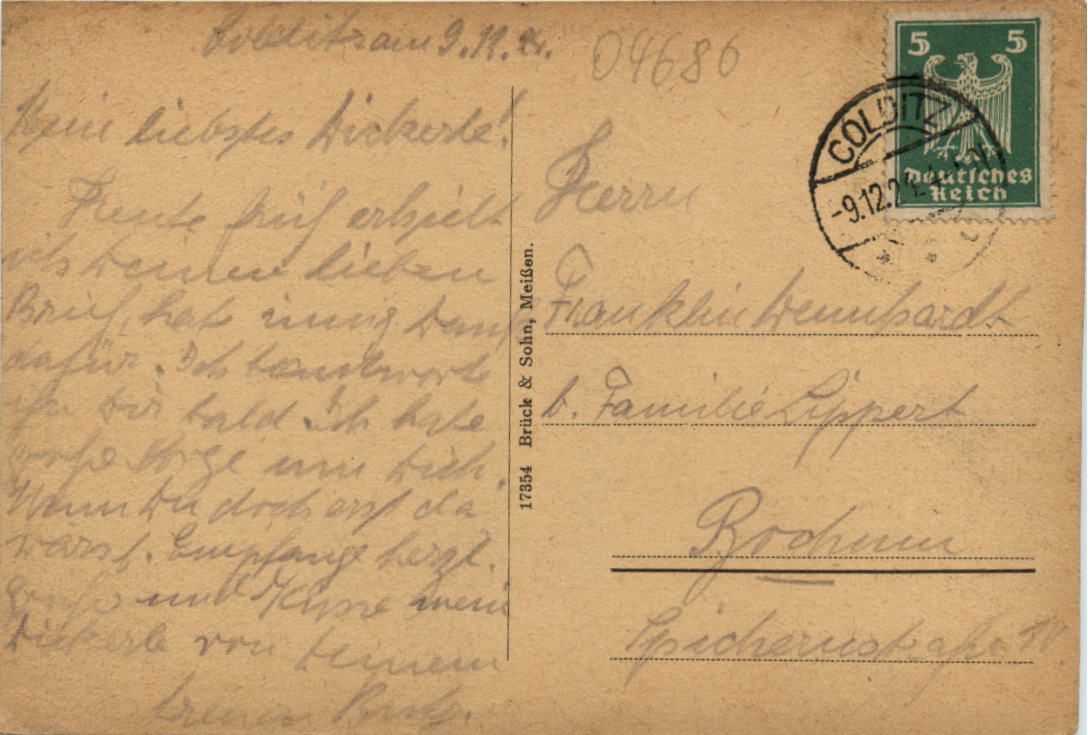 Colditz am 9.12.
04686
Mein liebstes Dickerle!
Heute früh erhielt
ich Deinen lieben
Brief, hab innig Dank
dafür. Ich beantworte
ihn Dir bald. Ich habe
große Sorge um Dich.
Wenn Du doch erst da
wärst. Empfange herzl.
Grüße und Küsse mein
Dickerle von Deinem
treuen
17354 Brück & Sohn, Meißen.
5 5
Deutsches
Reich
COLDITZ
-9.12.2
Herrn
Franklin Dennhardt
b. Familie Lippert
Bochum
Spichernstraße